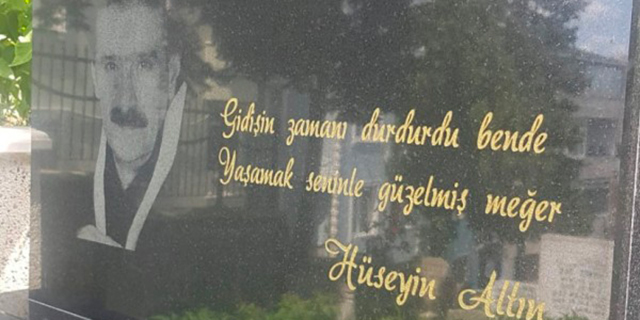 Gidişin zamanı durdurdu bende
Yaşamak seninle güzelmiş meğer
Hüseyin Altın